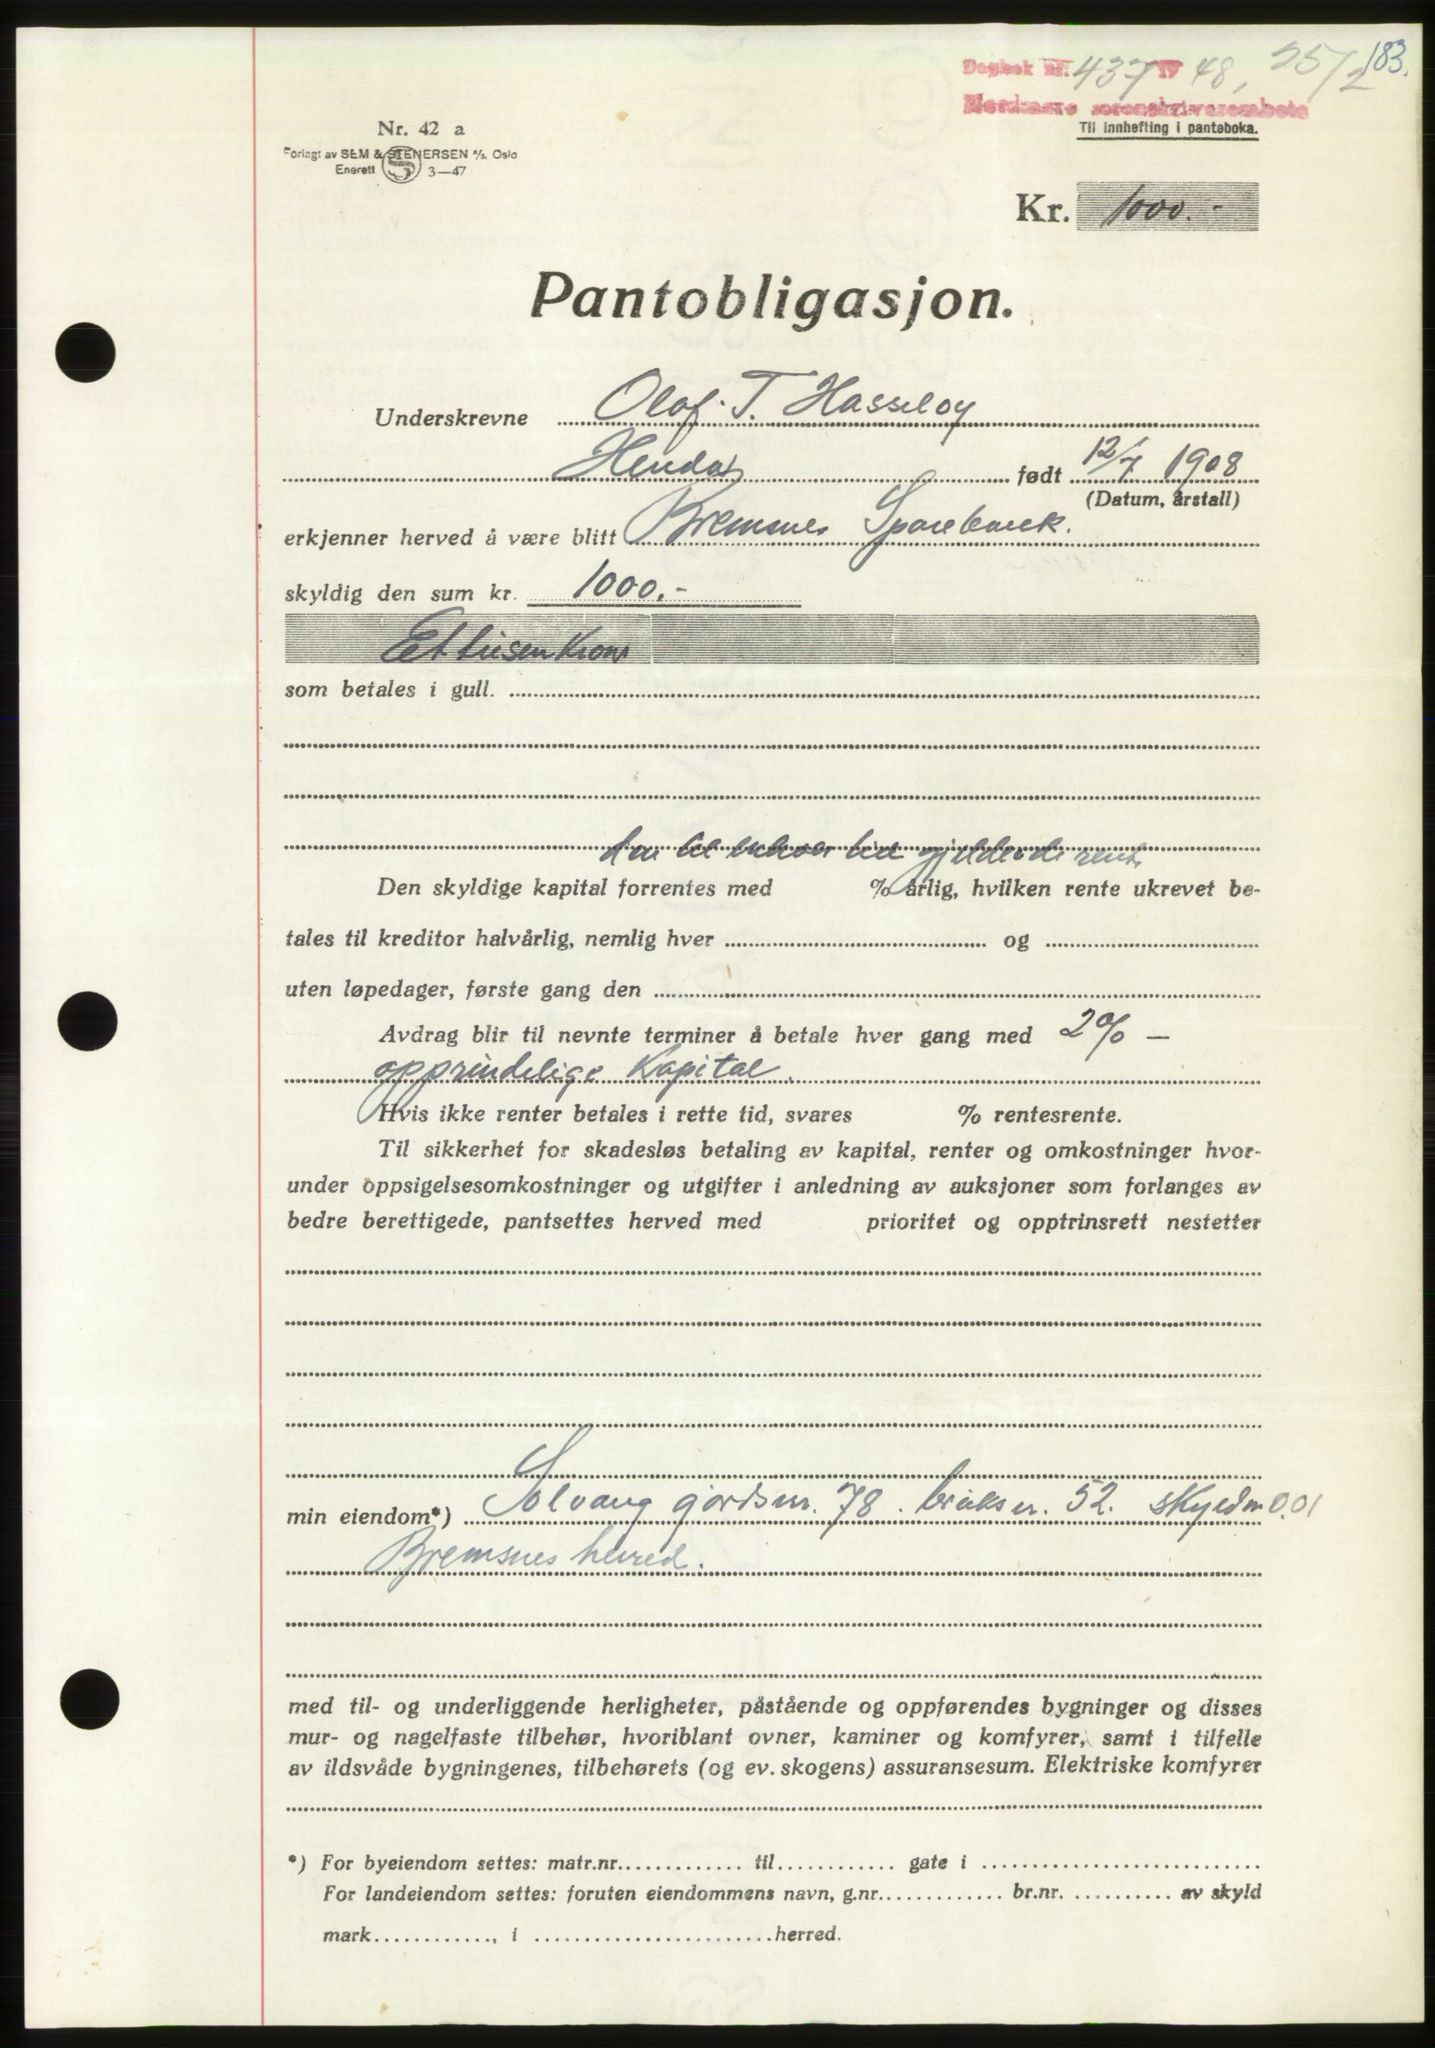 183.
Dagbok nr. 437 19 48, 25/2
Nordmøre sorenskriverembete
Til innhefting i panteboka.
Nr. 42 a
Forlagt av SEM & STENERSEN A/S, Oslo
Enerett 3—47
Kr. 1000.-
Pantobligasjon.
Underskrevne Olaf T. Hasseløy
Hendal født 12/7 1908
(Datum, årstall)
erkjenner herved å være blitt Bremsnes Sparebank.
skyldig den sum kr. 1000.-
Ettusen Kroner
som betales i gull.
den til enhver tid gjeldende rente
Den skyldige kapital forrentes med % årlig, hvilken rente ukrevet be-
tales til kreditor halvårlig, nemlig hver og
uten løpedager, første gang den
Avdrag blir til nevnte terminer å betale hver gang med 2% —
opprindelige Kapital.
Hvis ikke renter betales i rette tid, svares % rentesrente.
Til sikkerhet for skadesløs betaling av kapital, renter og omkostninger hvor-
under oppsigelsesomkostninger og utgifter i anledning av auksjoner som forlanges av
bedre berettigede, pantsettes herved med prioritet og opptrinsrett nestetter
min eiendom*) Solvang gårdsnr. 78. bruksnr. 52. skyldm 0,01
Bremsnes herred.
med til- og underliggende herligheter, påstående og oppførendes bygninger og disses
mur- og nagelfaste tilbehør, hvoriblant ovner, kaminer og komfyrer, samt i tilfelle
av ildsvåde bygningenes, tilbehørets (og ev. skogens) assuransesum. Elektriske komfyrer
*) For byeiendom settes: matr.nr............. til............ gate i ............................
For landeiendom settes: foruten eiendommens navn, g.nr............. br.nr. .......... av skyld
mark............, i ........................herred.